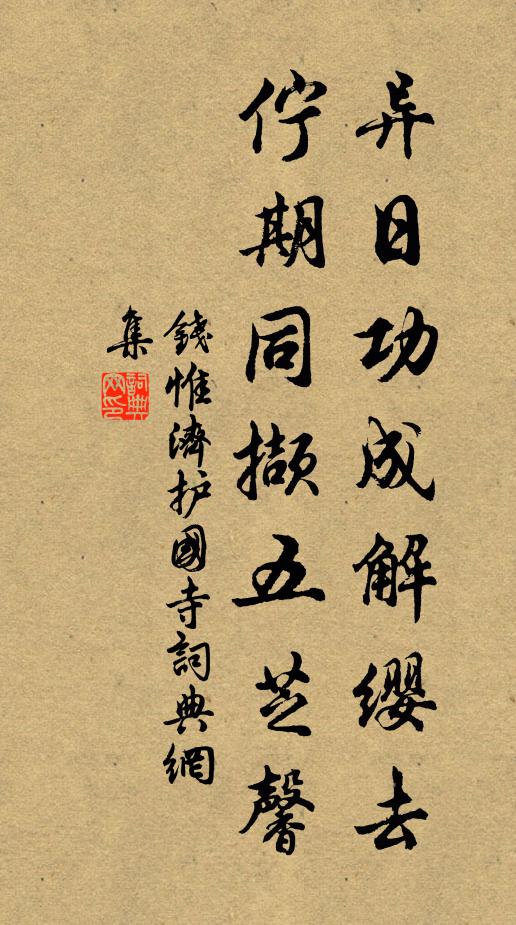 异日功成解缨去
伫期同撷五芝馨
錢惟濟护國寺詞典網
集
詞典
网印